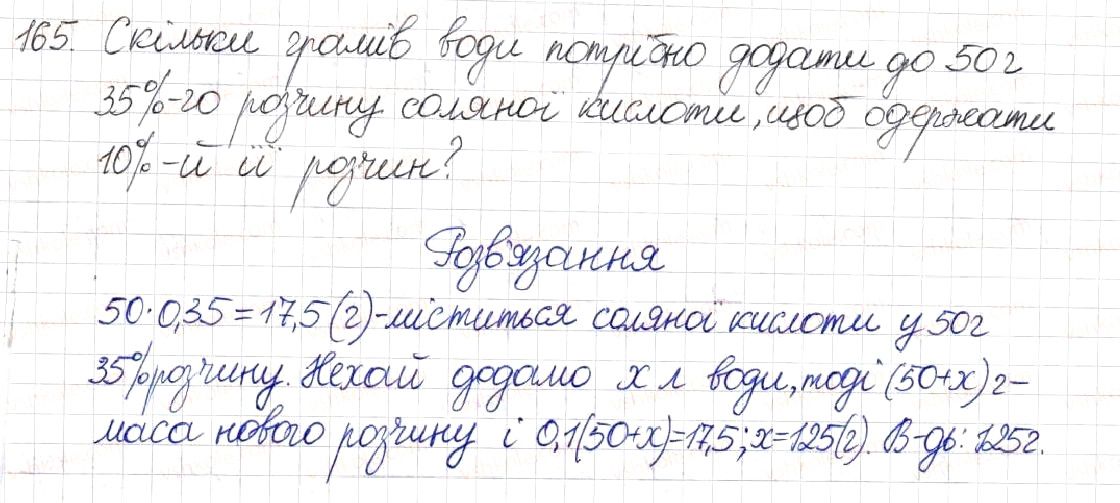 165. Скільки грамів води потрібно додати до 50 г
35%-го розчину соляної кислоти, щоб одержати
10%-й її розчин?
Розв'язання
50·0,35=17,5(г)-міститься соляної кислоти у 50г
35% розчину. Нехай додамо х л води, тоді (50+х) г-
маса нового розчину і 0,1(50+х)=17,5; х=125(г). В-дь: 125г.